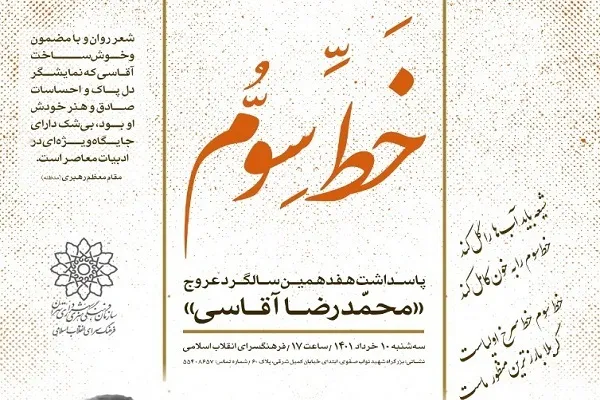 شعر روان و با مضمون
و خوش‌ساخت
آقاسی که نمایشگر
دل پاک و احساسات
صادق و هنر خودش
او بود، بی‌شک دارای
جایگاه ویژه‌ای در
ادبیات معاصر است.
مقام معظم رهبری (مدظله)
خطِّ سوُّم
پاسداشت هفدهمین سالگرد عروج
«محمّدرضا آقاسی»
سه‌شنبه ۱۰ خرداد ۱۴۰۱ / ساعت ۱۷ / فرهنگسرای انقلاب اسلامی
نشانی: بزرگراه شهید نواب صفوی، ابتدای خیابان کمیل شرقی، پلاک ۶۰ / شماره تماس: ۵۵۴۰۸۶۵۷
شیعه باید آب‌ها را گل کند
خط سوم را به خون کامل کند
خط سوم خط سرخ اولیاست
کربلا بارزترین منظور ماست
سازمان فرهنگی هنری شهرداری تهران
فرهنگسرای انقلاب اسلامی